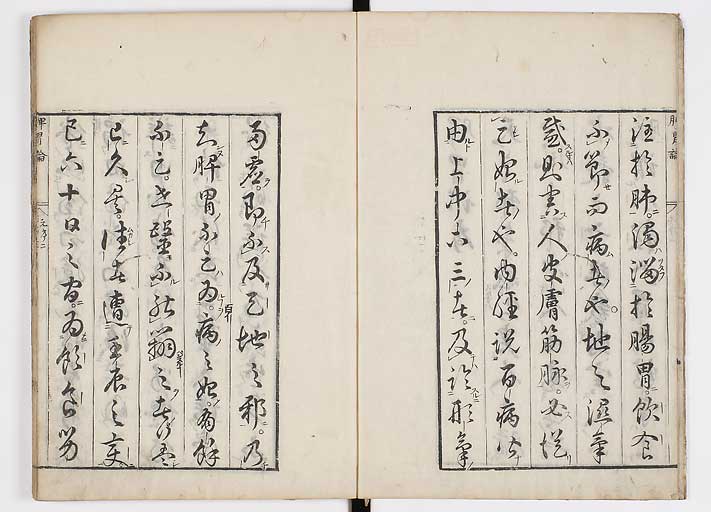 脾胃論
注於肺濁溜於腸胃飲食
不節而病者也地之濕氣
感則害人皮膚筋脉必從
足始者也内經說百病皆
由上中下三者及論形氣
兩虛即不及天地之邪乃
知脾胃不足為百病之始有餘
不足世醫不能辨之者蓋
已久矣往者遭壬辰之變
五六十日之間為飲食勞
脾胃論